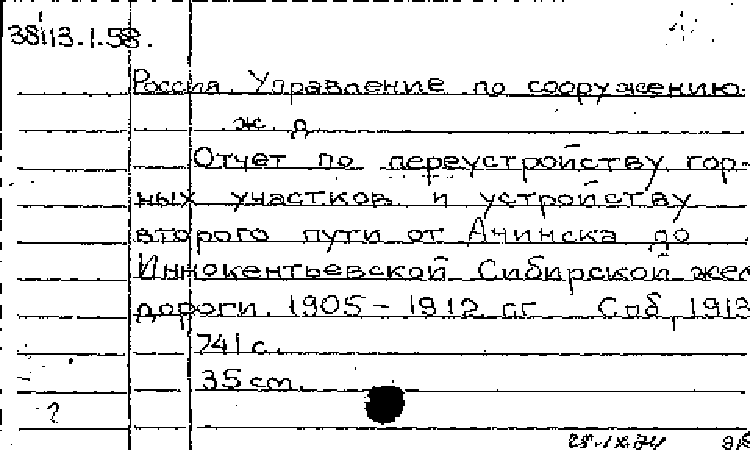 38/13.1.58.
Россия. Управление по сооружению
ж. д.
Отчет по переустройству гор-
ных участков и устройству
второго пути от Ачинска до
Иннокентьевской Сибирской жел
дороги. 1905-1912 гг. Спб, 1913
741 с.
35 cm.
?